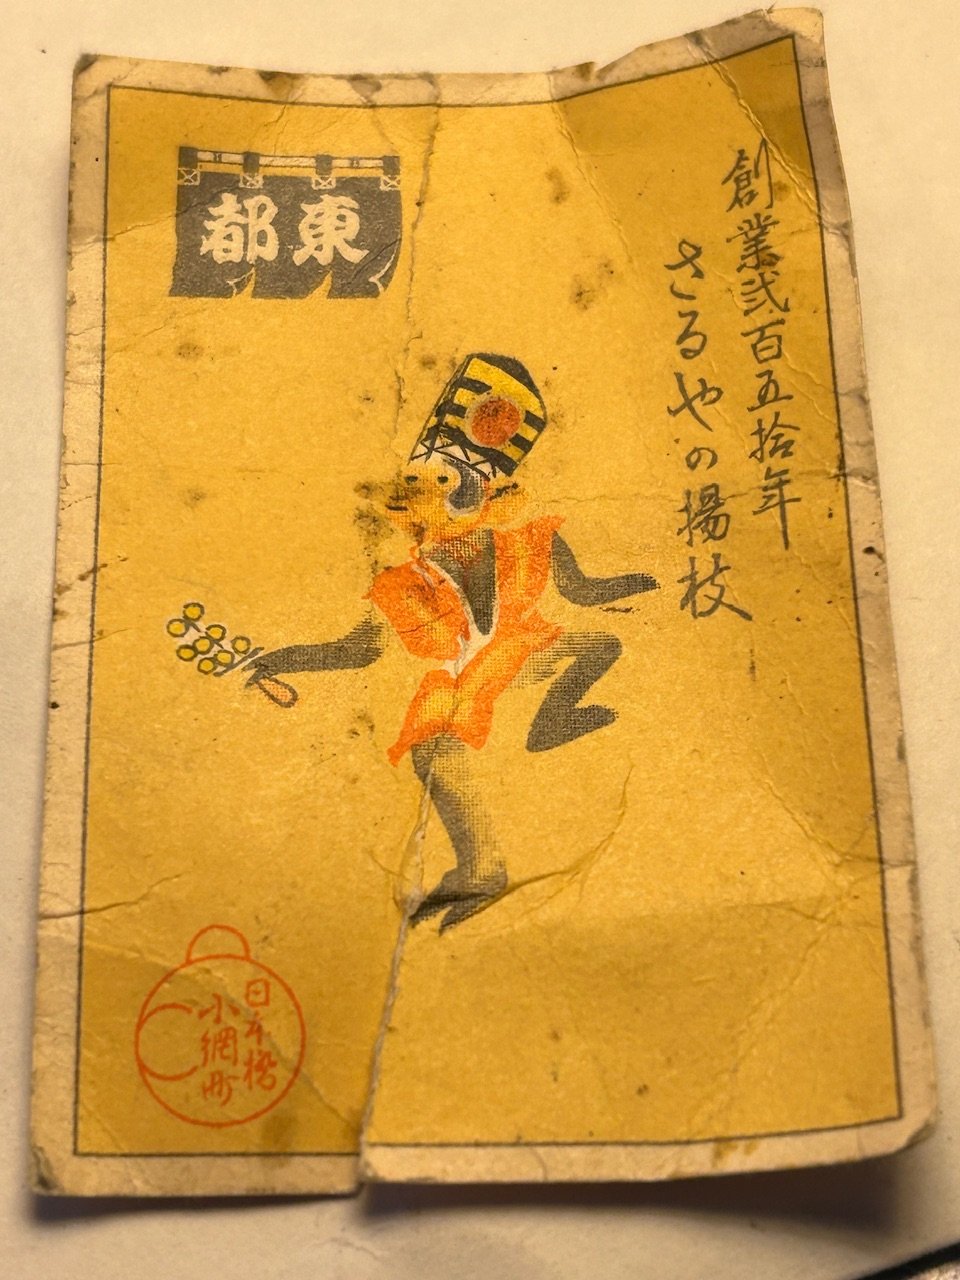 創業弐百五拾年
さるやの揚枝
東都
日本橋
小網町